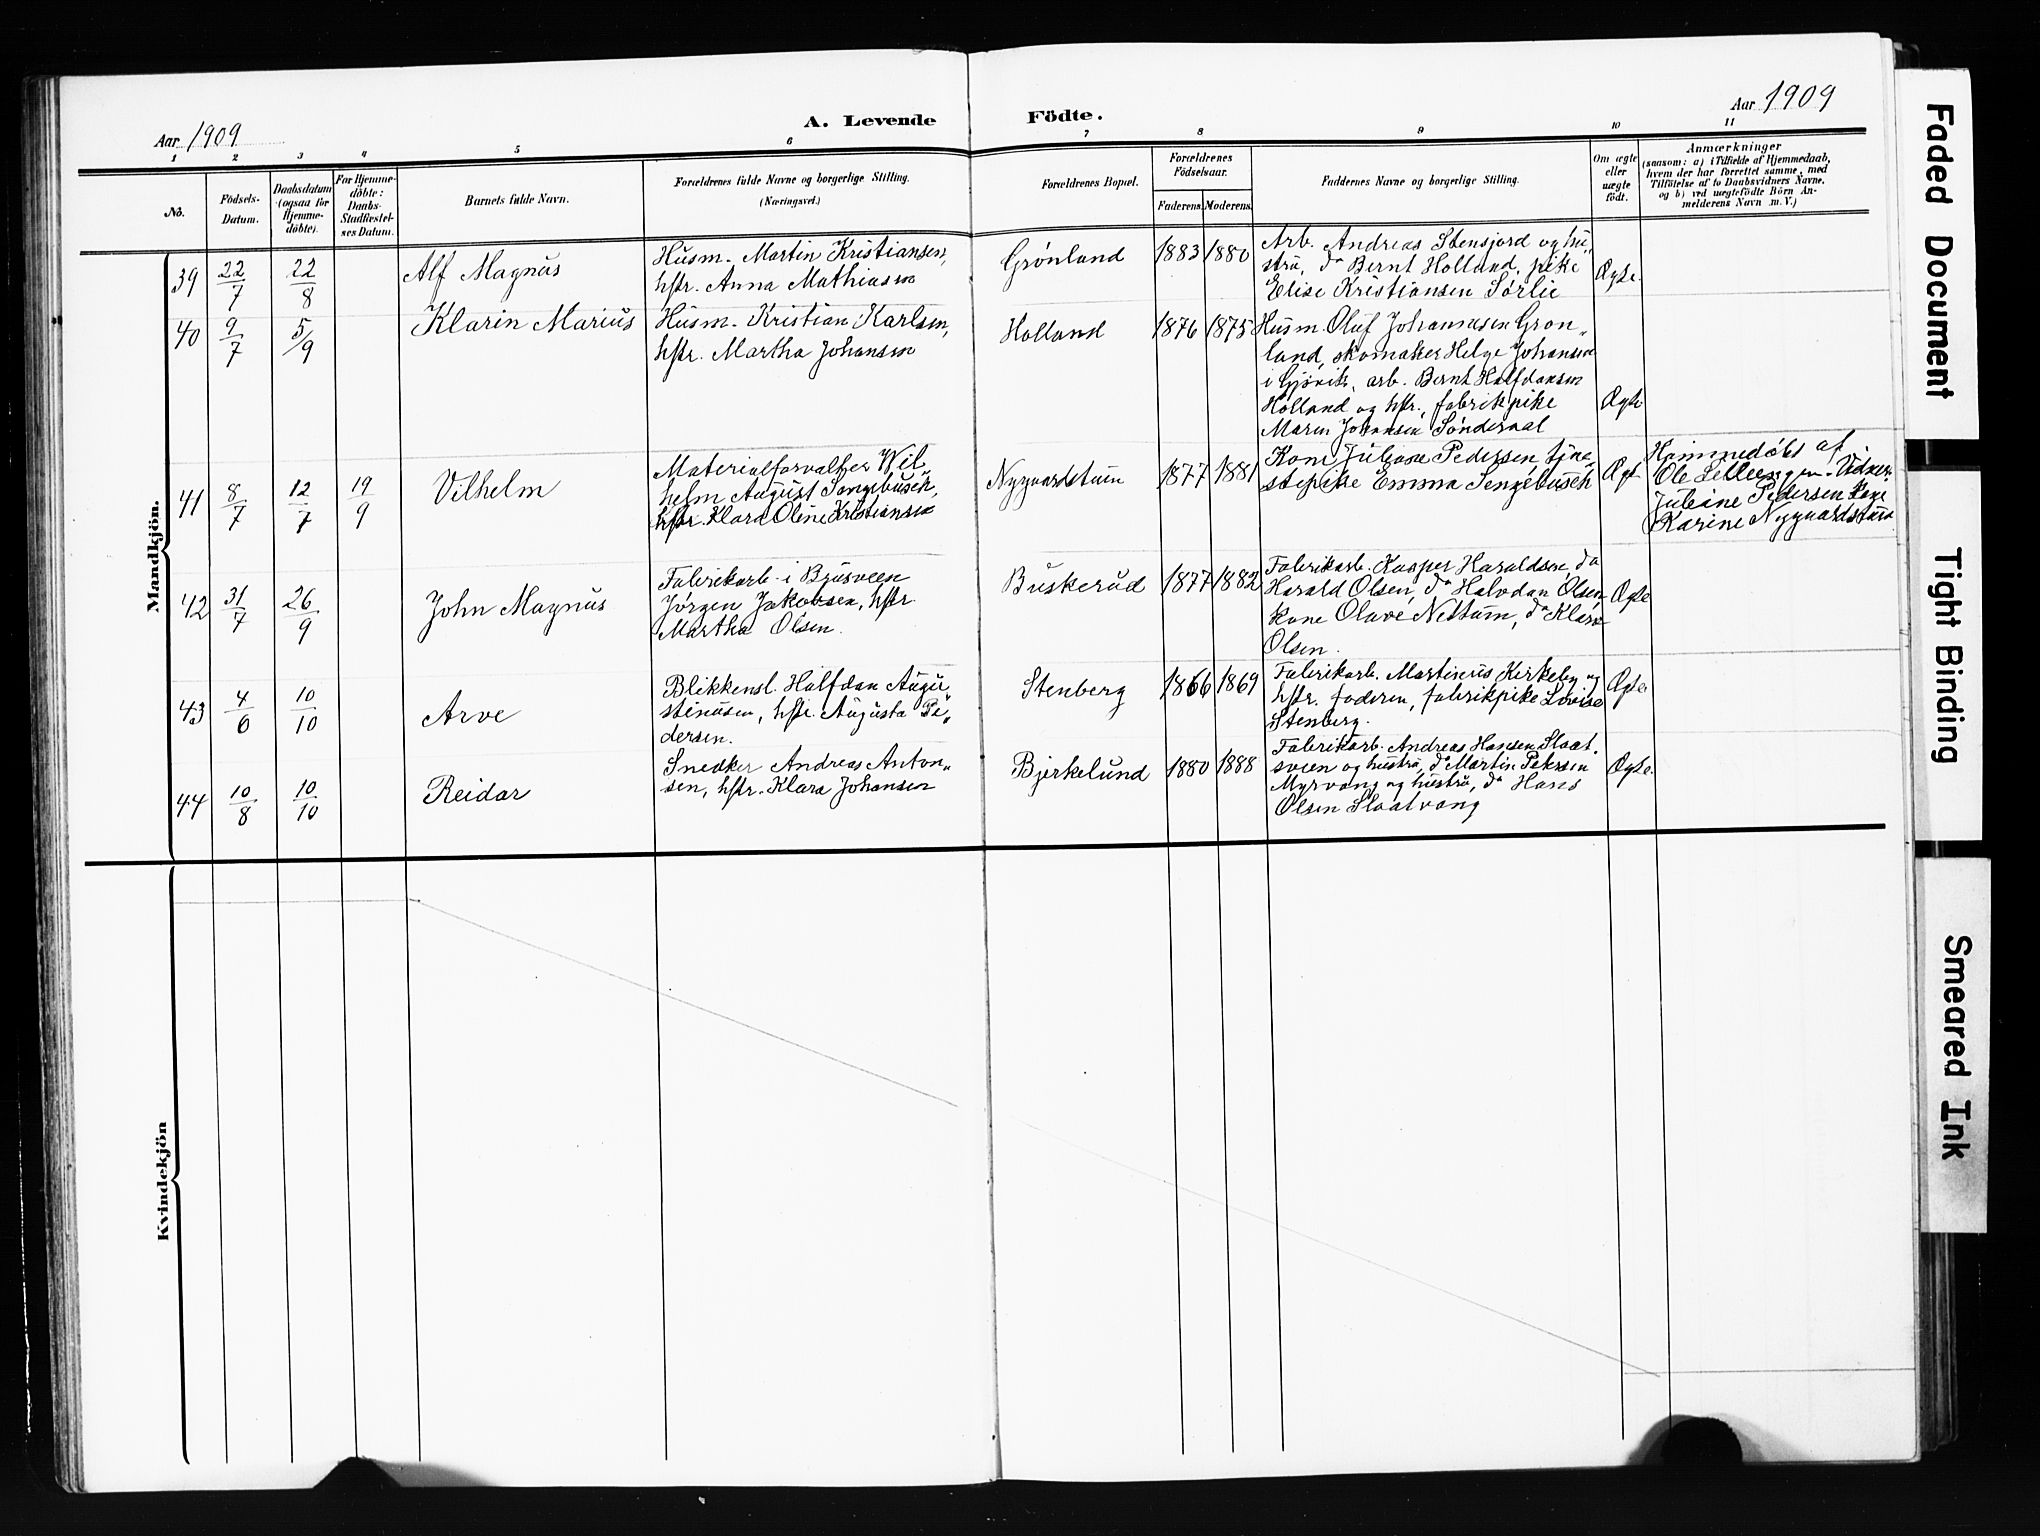 Aar 1909
A. Levende
Födte.
Aar 1909
1 2 3 4 5 6 7 8 9 10 11
No.
Födsels-
Datum.
Daabsdatum
(ogsaa for
Hjemme-
döbte).
For Hjemme-
döbte:
Daabs-
Stadfæstel-
ses Datum.
Barnets fulde Navn.
Forældrenes fulde Navne og borgerlige Stilling.
(Næringsvei.)
Forældrenes Bopæl.
Forældrenes
Födselsaar.
Faderens. Moderens.
Faddernes Navne og borgerlige Stilling.
Om ægte
eller
uægte
födt.
Anmærkninger
(saasom: a) i Tilfælde af Hjemmedaab,
hvem der har forrettet samme, med
Tilföielse af to Daabsvidners Navne.
og b) ved uægtefödte Börn An-
melderens Navn m. V.)
Mandkjön.
39 22/7 22/8
Alf Magnus
Husm. Martin Kristiansen,
hstr. Anna Mathiasen
Grønland
1883 1880
Arb. Andreas Stensjord og hu-
stru, do Bernt Holland, pike
Elise Kristiansen Sørlie
Ægte.
40 9/7 5/9
Klarin Marius
Husm. Kristian Karlsen,
hstr. Martha Johansen
Holland
1876 1875
Husm. Oluf Johannesen Grøn-
land, skomaker Helge Johansen
i Gjøvik, arb. Bernt Halfdansen
Holland og hstr., fabrikpike
Maren Johansen Sønderaal
Ægte
41 8/7 12/7 19/9
Vilhelm
Materialforvalter Wil-
helm August Sengebusch,
hstr. Klara Oline Kristiansen
Nygaardstuen
1877 1881
Kone Juliane Pedersen, tjene-
stepike Emma Sengebusch
Ægte
Hjemmedøbt af
Ole Lilleengen. Vidner:
Juliane Pedersen, kone
Karine Nygaardstuen
42 31/7 26/9
John Magnus
Fabrikarb. i Brusveen
Jørgen Jakobsen, hstr.
Martha Olsen.
Buskerud
1877 1882
Fabrikarb. Kasper Haraldsen, do
Harald Olsen, do Halvdan Olsen,
kone Olave Nettum, do Klara
Olsen.
Ægte
43 4/6 10/10
Arve
Blikkensl. Halfdan Augu-
stinusen, hstr. Augusta Pe-
dersen.
Stenberg
1866 1869
Fabrikarb. Martinius Kirkeby og
hstr. faderen, fabrikpike Lovise
Stenberg.
Ægte
44 10/8 10/10
Reidar
Snedker Andreas Anton-
sen, hstr. Klara Johansen
Bjerkelund
1880 1888
Fabrikarb. Andreas Hansen Slaat-
sveen og hustru, do Martin Petersen
Myrvang og hustru, do Hans
Olsen Slaatvang
Ægte.
Kvindekjön
Faded Document
Tight Binding
Smeared Ink